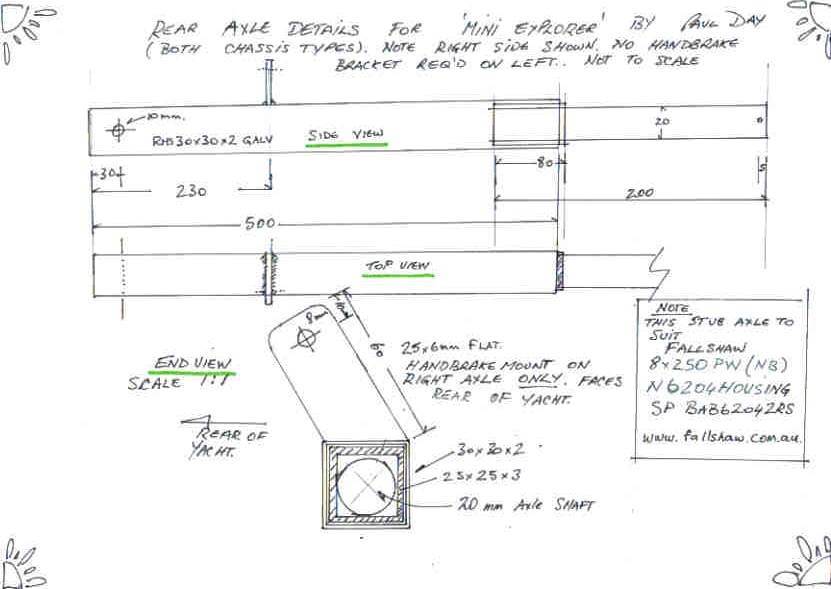 REAR AXLE DETAILS FOR 'MINI EXPLORER' BY PAUL DAY
(BOTH CHASSIS TYPES). NOTE RIGHT SIDE SHOWN. NO HANDBRAKE
BRACKET REQ'D ON LEFT.. NOT TO SCALE
10mm.
RHS 30x30x2 GALV
SIDE VIEW
20
30
80
5
230
200
500
TOP VIEW
8mm
60
25x6mm FLAT.
HANDBRAKE MOUNT ON
RIGHT AXLE ONLY. FACES
REAR OF YACHT.
END VIEW
SCALE 1:1
REAR OF
YACHT.
30x30x2
25x25x3
20 mm AXLE SHAFT
NOTE
THIS STUB AXLE TO
SUIT
FALLSHAW
8x250 PW (NB)
N6204 HOUSING
SP BAB62042RS
www.fallshaw.com.au.